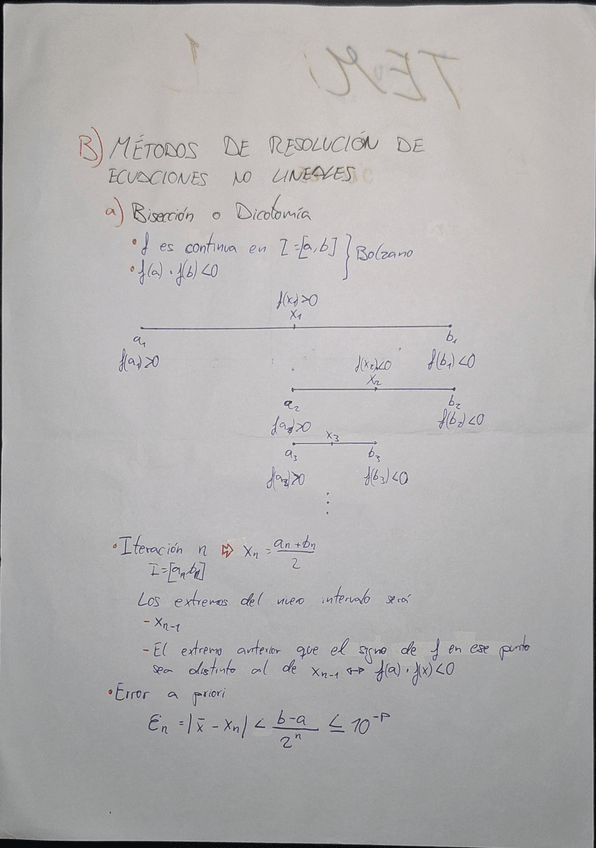 TEMA 1
B) MÉTODOS DE RESOLUCIÓN DE
ECUACIONES NO LINEALES
a) Bisección o Dicotomía
• f es continua en I=[a,b] } Bolzano
• f(a)·f(b)<0
f(x₁)>0
x₁
a₁ b₁
f(a₁)>0 f(b₁)<0
f(x₂)<0
x₂
a₂ b₂
f(a₂)>0 f(b₂)<0
x₃
a₃ b₃
f(a₃)>0 f(b₃)<0
⋮
• Iteración n ⇨ xₙ = (aₙ+bₙ)/2
I=[aₙ,bₙ]
Los extremos del nuevo intervalo será
- xₙ₋₁
- El extremo anterior que el signo de f en ese punto
sea distinto al de xₙ₋₁ ↔ f(a)·f(x)<0
• Error a priori
Ɛₙ = |x̄ - xₙ| < (b-a)/2ⁿ ≤ 10⁻ᵖ